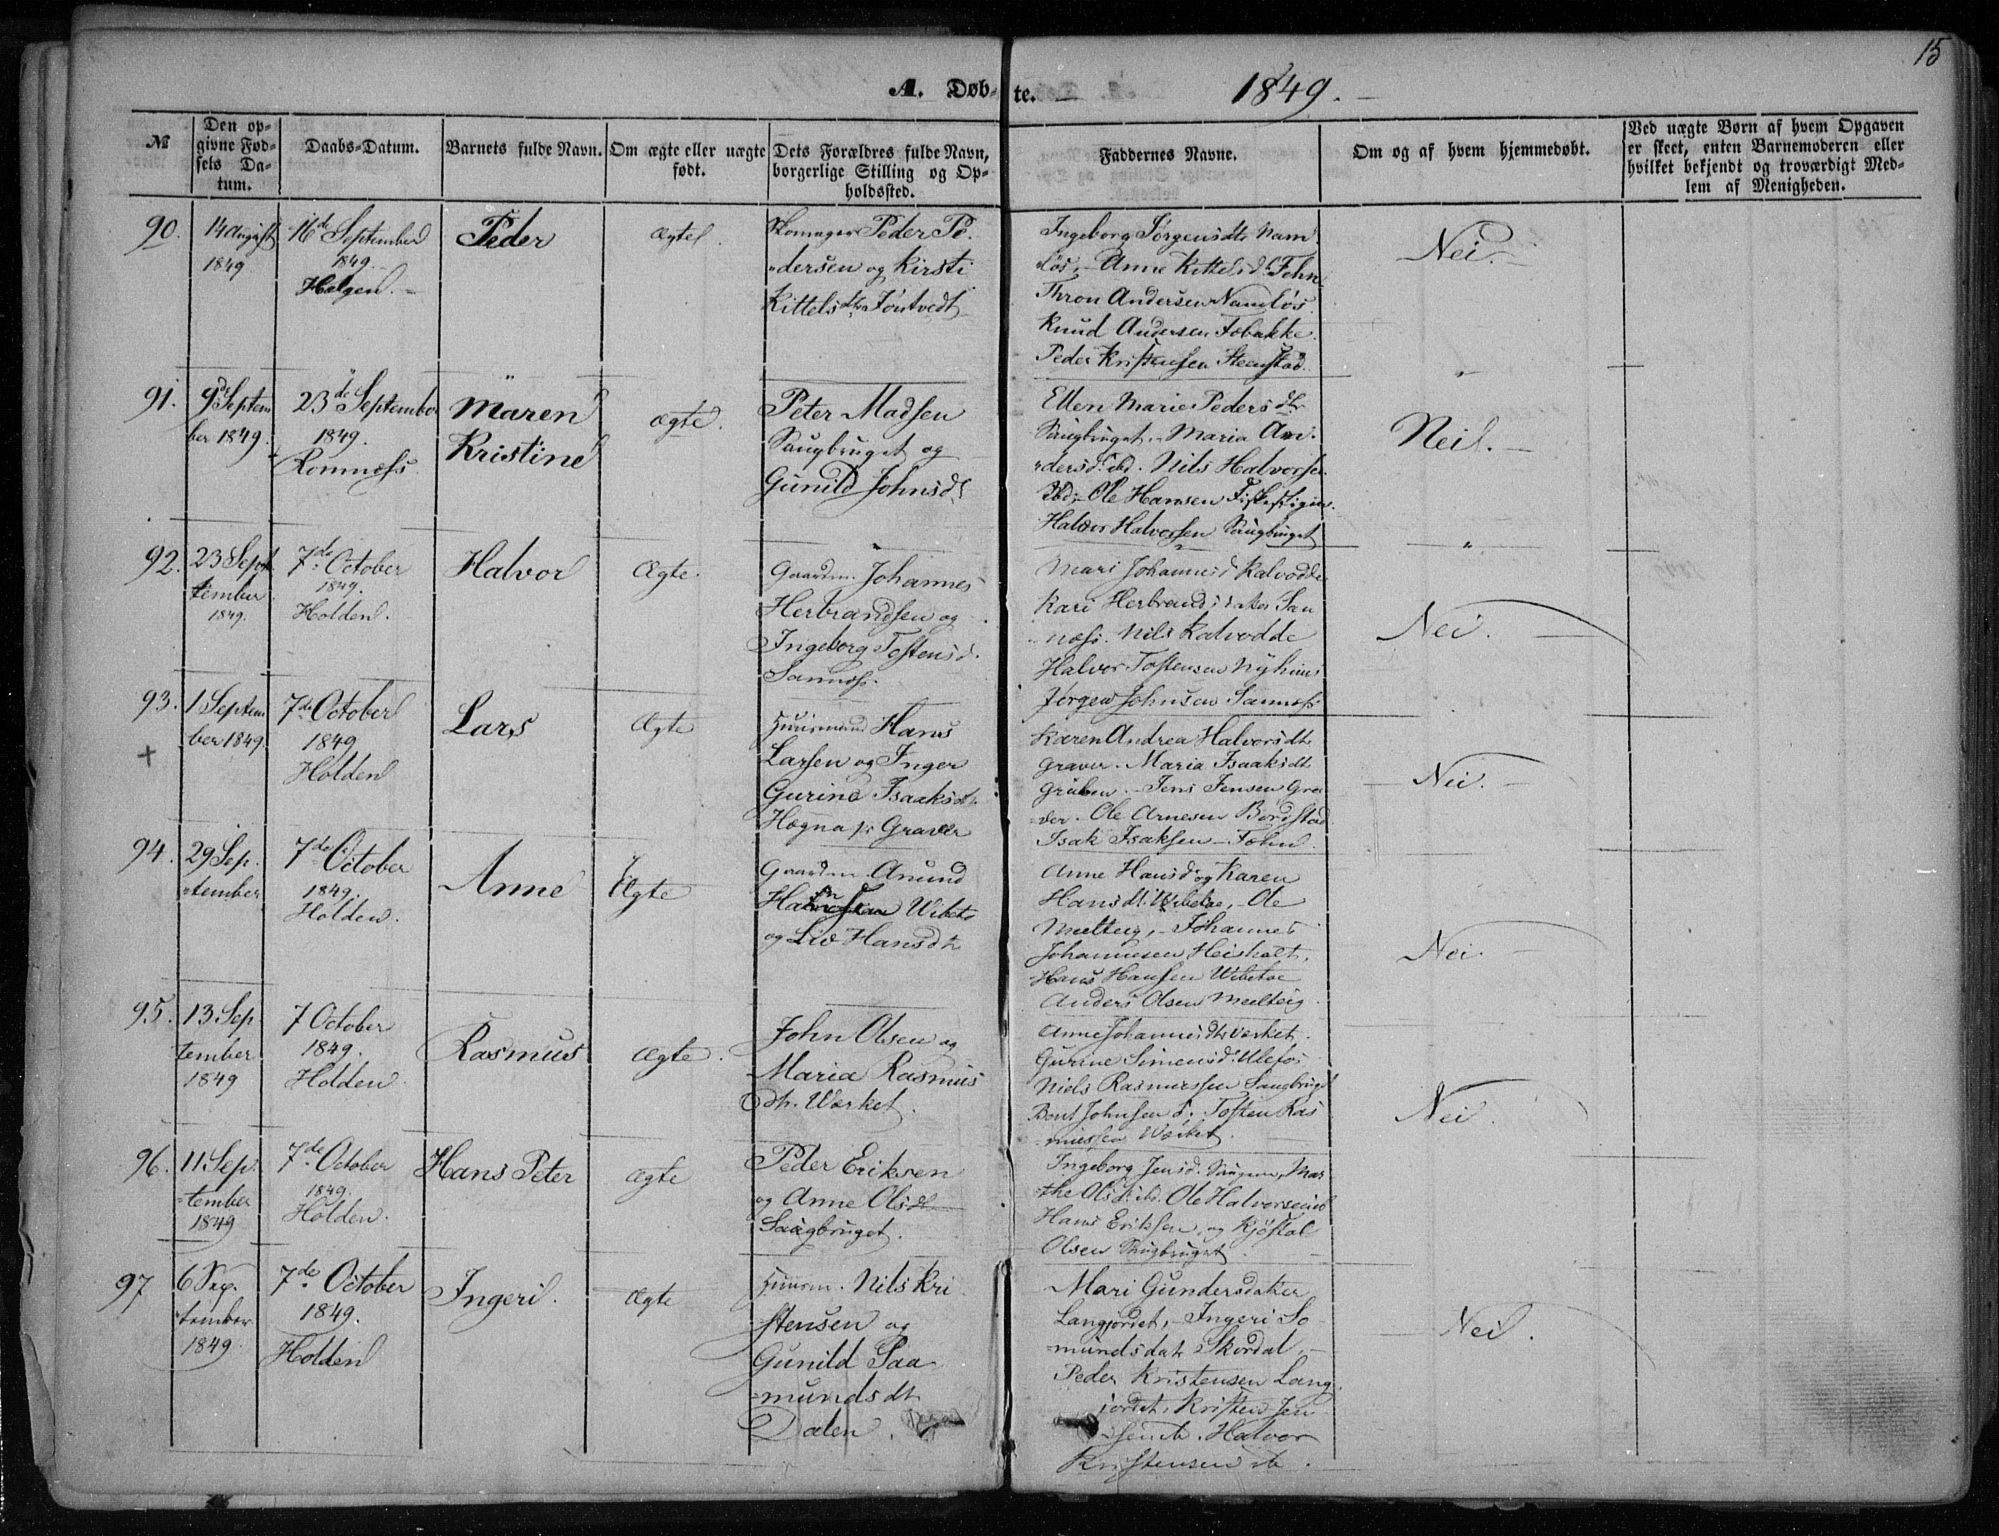 15
A. Døb- te. — 1849. —
№
Den op-
givne Fød-
sels Da-
tum.
Daabs-Datum.
Barnets fulde Navn.
Om ægte eller uægte
født.
Dets Forældres fulde Navn,
borgerlige Stilling og Op-
holdssted.
Faddernes Navne.
Om og af hvem hjemmedøbt.
Ved uægte Børn af hvem Opgaven
er skeet, enten Barnemoderen eller
hvilket bekjendt og troværdigt Med-
lem af Menigheden.
90.
14 August
1849
16de September
1849.
Helgen. —
Peder
Ægte
Skomager Peder Pe-
dersen og Kirsti
Kittelsdtr Tontvedt
Ingeborg Jørgensdtr Nam
løs, - Anne Kittelsd. Fehn
Thron Andersen Namløs
Knud Andersen Tobakke
Peder Kristensen Steenstad.
Nei. —
91.
9de Septem
ber 1849.
23de September
1849.
Romnæss
Maren
Kristine
Ægte.
Peter Madsen
Saugbruget og
Gunild Johnsdt
Ellen Marie Pedersdtr
Saugbruget, - Maria An-
dersd. ibd. Nils Halvorsen
Ibd, - Ole Hansen
Halvor Halvorsen Saugbruget
Nei. —
92.
23 Sept
tember
1849.
7de October
1849.
Holden.
Halvor
Ægte.
Gaardm. Johannes
Herbrandsen og
Ingeborg Tostensd.
Sannæss.
Mari Johannesd Kalvodde
Kari Herbrandsdater San
næss. Nils Kalvodde
Halvor Tostensen Nyhuus
Jørgen Johnsen Sannæss
Nei. —
93.
+
1 Septem
ber 1849.
7de October
1849
Holden
Lars
Ægte
Huusmand Hans
Larsen og Inger
Gurine Isaaksdtr
Høgna p: Graver
Karen Andrea Halvorsdtr
Graver. Maria Isaaksdt
Gruben. - Jens Jensen Gra
ver. Ole Arnesen Bordstad
Isak Isaksen - Fehn.
Nei. —
94.
29 Sep.
tember
7de October
1849.
Holden.
Anne
Ægte
Gaardm. Anund
Wibeto
og Liv Hansdtr
Anne Hansd og Karen
Hansdt. Wibetoe, - Ole
Meelteig, - Johannes
Johannesen Heisholt,
Hans Hansen Wibetoe
Anders Olsen Meelteig.
Nei. —
95.
13 Sep
tember
1849
7 October
1849.
Holden.
Rasmus
Ægte.
John Olsen og
Maria Rasmus
dtr. Værket.
Anne Johannesdtr Værket.
Gurine Simensd. Ulefos
Niels Rasmussen Saugbruget
Bent Johnsen d. Tosten Ras
mussen Værket.
Nei. —
96.
11 Sep.
tember
1849
7de October
1849.
Holden.
Hans Peter
Ægte
Peder Eriksen
og Anne Olsdt
Saugbruget.
Ingeborg Jensd. Mar
the Olsd. ibd. Ole Halvorsen ibd
Hans Eriksen, og Kjøstol
Olsen Saugbruget
97
6 Sep.
tember
1849.
7de October
1849.
Holden
Ingeri.
Ægte
Huusm. Nils Kri
stensen og
Gunild Saa
mundsdt
Dalen.
Mari Gundersdater
Langjordet, - Ingeri So
mundsdatr Skordal, -
Peder Kristensen Lang
jordet, Kristen Jen
sen ib. Halvor
Kristensen ib.
— Nei.